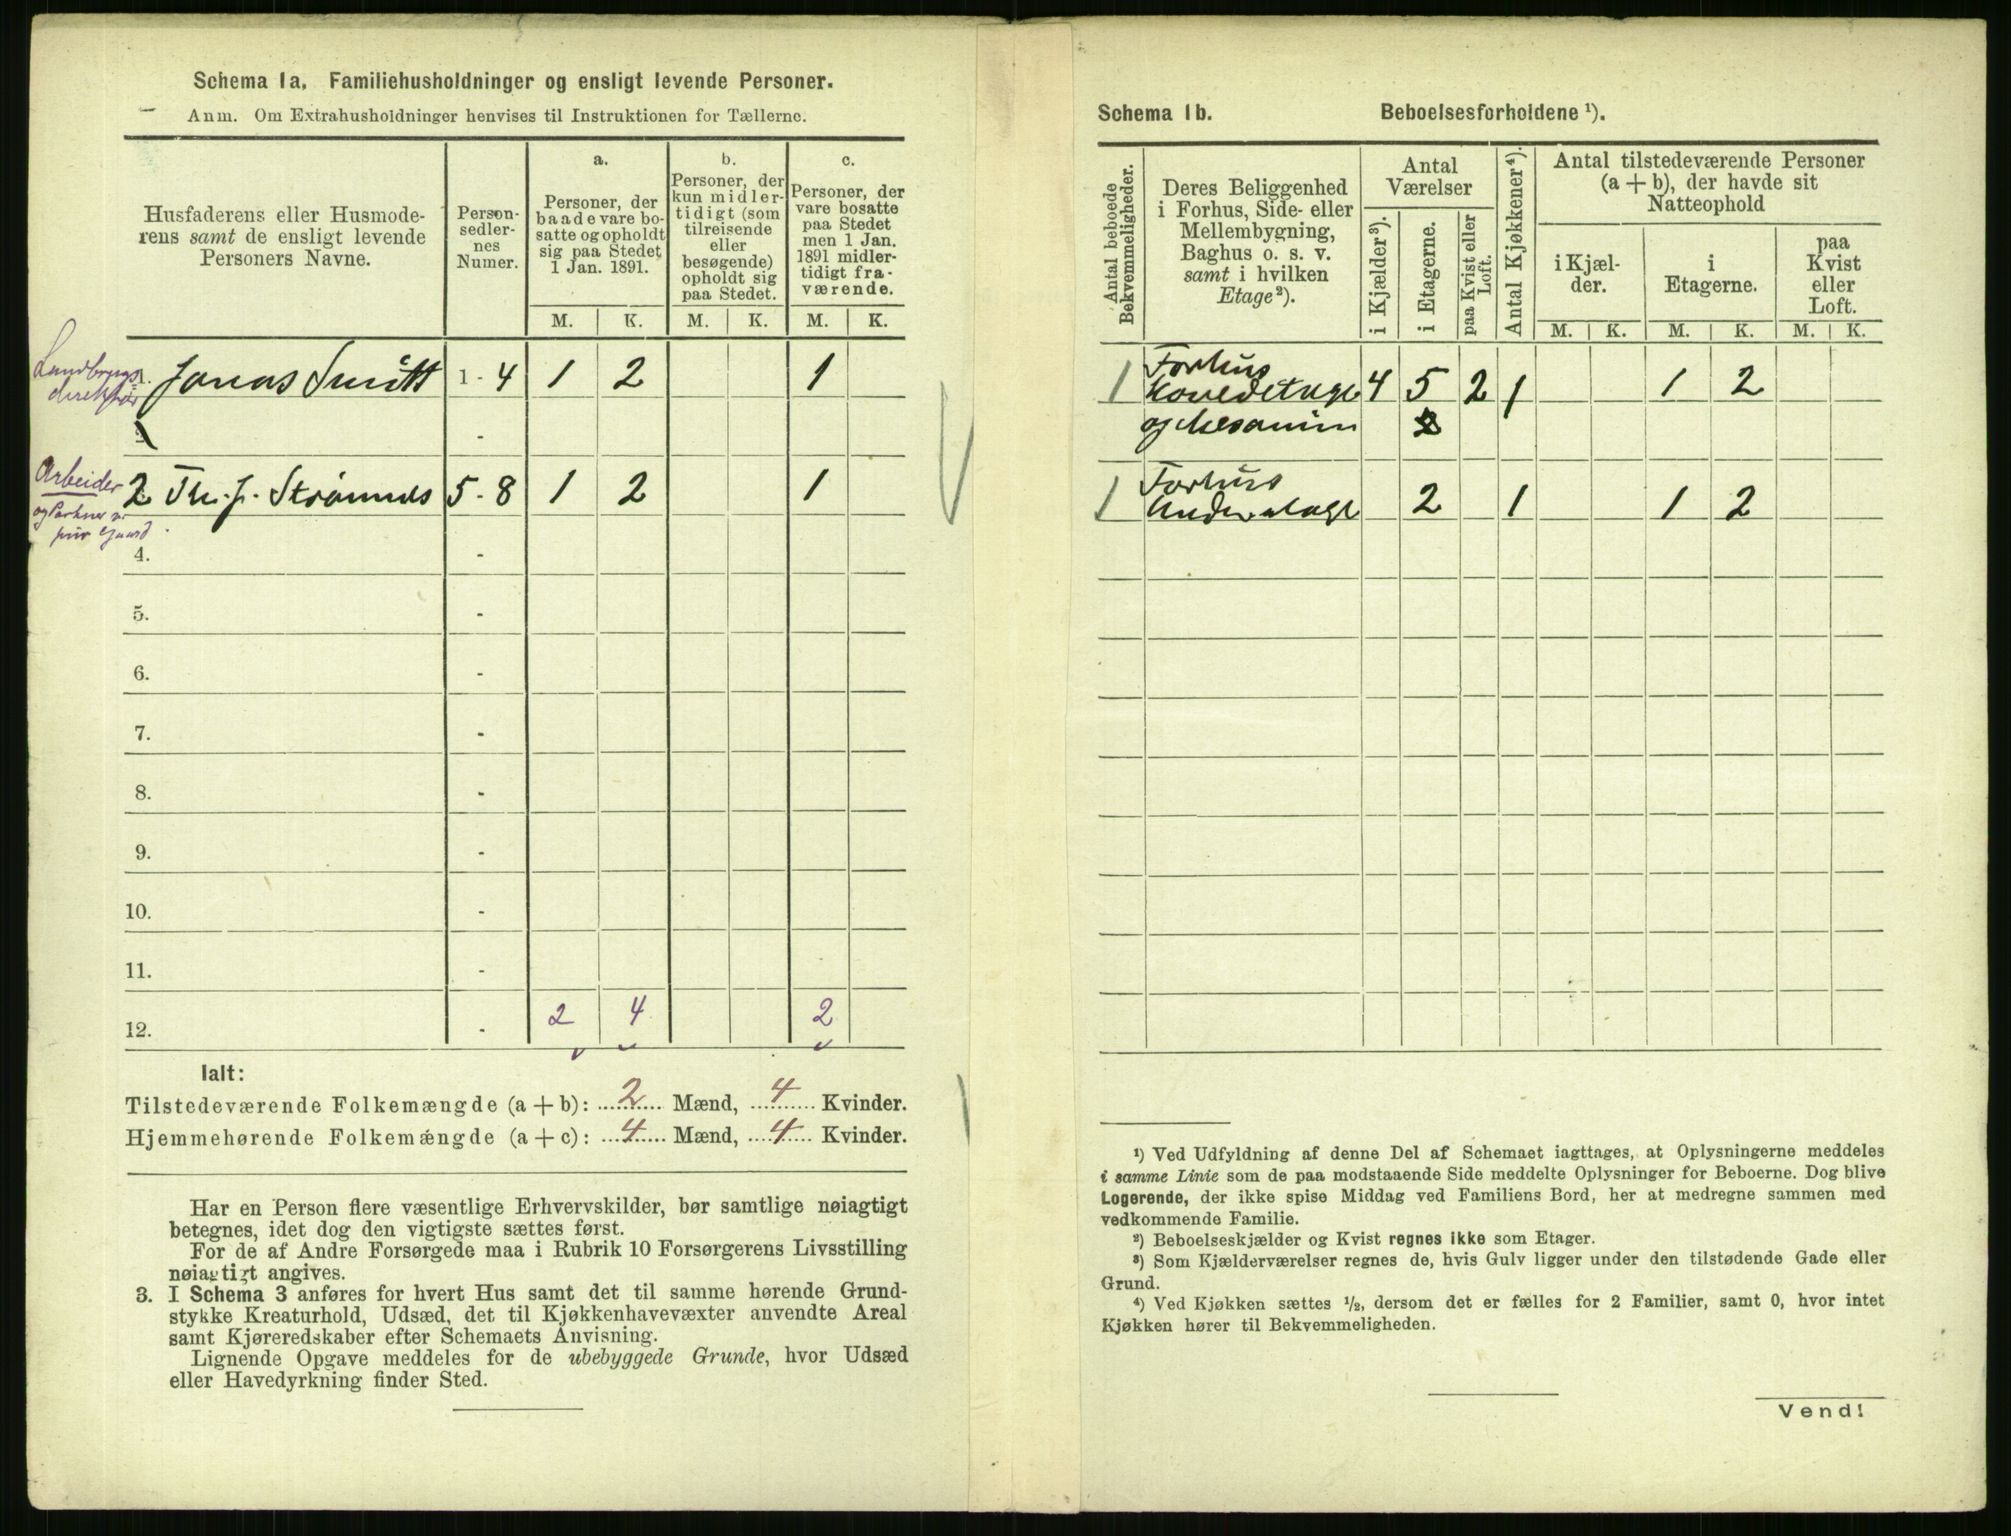 Schema 1a. Familiehusholdninger og ensligt levende Personer.
Anm. Om Extrahusholdninger henvises til Instruktionen for Tællerne.
Husfaderens eller Husmoderens samt de ensligt levende Personers Navne.
Personsedlernes Numer.
a.
Personer, der baade vare bosatte og opholdt sig paa Stedet 1 Jan. 1891.
b.
Personer, der kun midlertidigt (som tilreisende eller besøgende) opholdt sig paa Stedet.
c.
Personer, der vare bosatte paa Stedet men 1 Jan. 1891 midlertidigt fraværende.
M. K. M. K. M. K.
Landbrugs
direktør
1. Jonas Smitt 1 - 4 1 2 1
-
Arbeider 2 Th. J. Strømnes 5 - 8 1 2 1
4. -
5. -
6. -
7. -
8. -
9. -
10. -
11. -
12. - 2 4 2
Ialt:
Tilstedeværende Folkemængde (a + b): 2 Mænd, 4 Kvinder.
Hjemmehørende Folkemængde (a + c): 4 Mænd, 4 Kvinder.
Har en Person flere væsentlige Erhvervskilder, bør samtlige nøiagtigt
betegnes, idet dog den vigtigste sættes først.
For de af Andre Forsørgede maa i Rubrik 10 Forsørgerens Livsstilling
nøiagtigt angives.
3. I Schema 3 anføres for hvert Hus samt det til samme hørende Grund-
stykke Kreaturhold, Udsæd, det til Kjøkkenhavevæxter anvendte Areal
samt Kjøreredskaber efter Schemaets Anvisning.
Lignende Opgave meddeles for de ubebyggede Grunde, hvor Udsæd
eller Havedyrkning finder Sted.
Schema 1b. Beboelsesforholdene ¹).
Antal beboede Bekvemmeligheder.
Deres Beliggenhed i Forhus, Side- eller Mellembygning, Baghus o. s. v. samt i hvilken Etage²).
Antal Værelser
i Kjælder³).
i Etagerne.
paa Kvist eller Loft.
Antal Kjøkkener⁴).
Antal tilstedeværende Personer (a + b), der havde sit Natteophold
i Kjælder.
i Etagerne.
paa Kvist eller Loft.
M. K. M. K. M. K.
1 Forhus
Hovedetage 4 5 2 1 1 2
og Mesanin
1 Forhus
Underetage 2 1 1 2
¹) Ved Udfyldning af denne Del af Schemaet iagttages, at Oplysningerne meddeles
i samme Linie som de paa modstaaende Side meddelte Oplysninger for Beboerne. Dog blive
Logerende, der ikke spise Middag ved Familiens Bord, her at medregne sammen med
vedkommende Familie.
²) Beboelseskjælder og Kvist regnes ikke som Etager.
³) Som Kjælderværelser regnes de, hvis Gulv ligger under den tilstødende Gade eller
Grund.
⁴) Ved Kjøkken sættes ½, dersom det er fælles for 2 Familier, samt 0, hvor intet
Kjøkken hører til Bekvemmeligheden.
Vend!